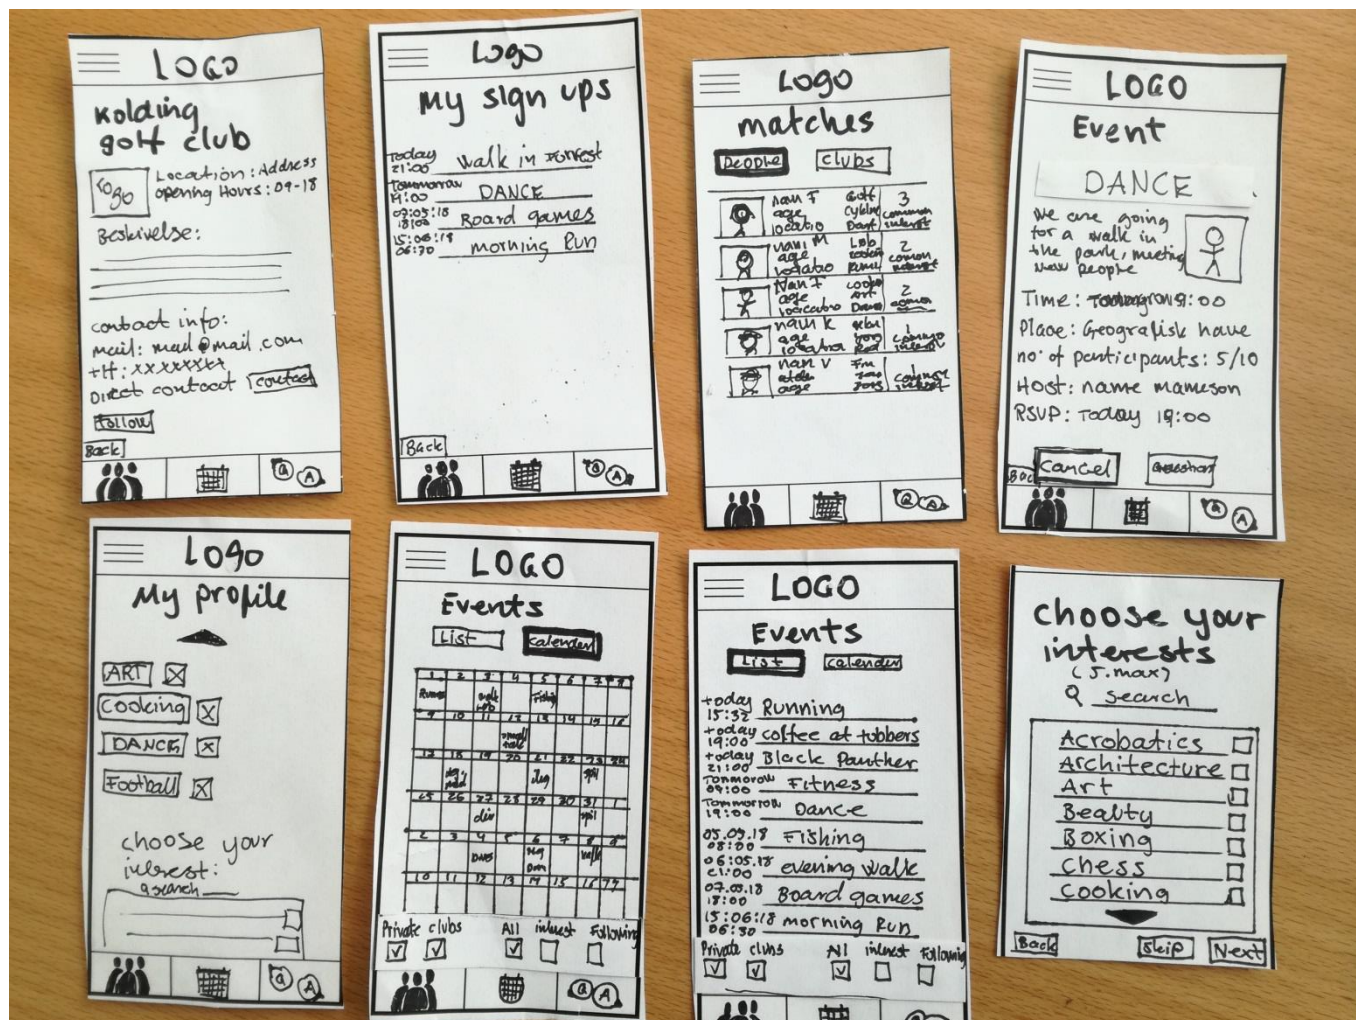 LOGO
Kolding
golf club
Logo
Location: Address
opening Hours: 09-18
Beskivelse:
contact info:
mail: mail@mail.com
tlf: xxxxxxxx
Direct contact contact
Follow
Back
Q A
Logo
My sign ups
Today
21:00 walk in Forrest
Tommorrow
19:00 DANCE
07:05:18
18:00 Board games
15:06:18
06:30 morning Run
Back
Q A
Logo
matches
People clubs
nam F
age
locatio
Golf
3
common
interest
nam M
age
2
Nam F
age
Art
2
nam K
age
1
nam V
age
1
Q A
LOGO
Event
DANCE
We are going
for a walk in
the park, meeting
new people
Time: 19:00
Place: Geografisk have
no. of participants: 5/10
Host: name nameson
RSVP: Today 19:00
Cancel Question
Bac
Q A
Logo
My profile
ART
Cooking
DANCE
Football
choose your
interest:
search
Q A
LOGO
Events
List calender
1 2 3 4 5 6 7 8
9 10 11 12 13 14 15 16
25 26 27 28 29 30 31 1
2 3 4 5 6 7 8 9
10 11 12 13 14 15 16 17
Private clubs All interest Following
Q A
LOGO
Events
List calender
today
15:32 Running
today
19:00 coffee at tobbers
today
21:00 Black Panther
Tonmorow
09:00 Fitness
Tommorrow
19:00 Dance
05.05.18
08:00 Fishing
06:05.18
21:00 evening walk
07.05.18
18:00 Board games
15:06:18
06:30 morning Run
Private clubs All interest Following
Q A
choose your
interests
(5.max)
search
Acrobatics
Architecture
Art
Beauty
Boxing
chess
cooking
Back Skip Next